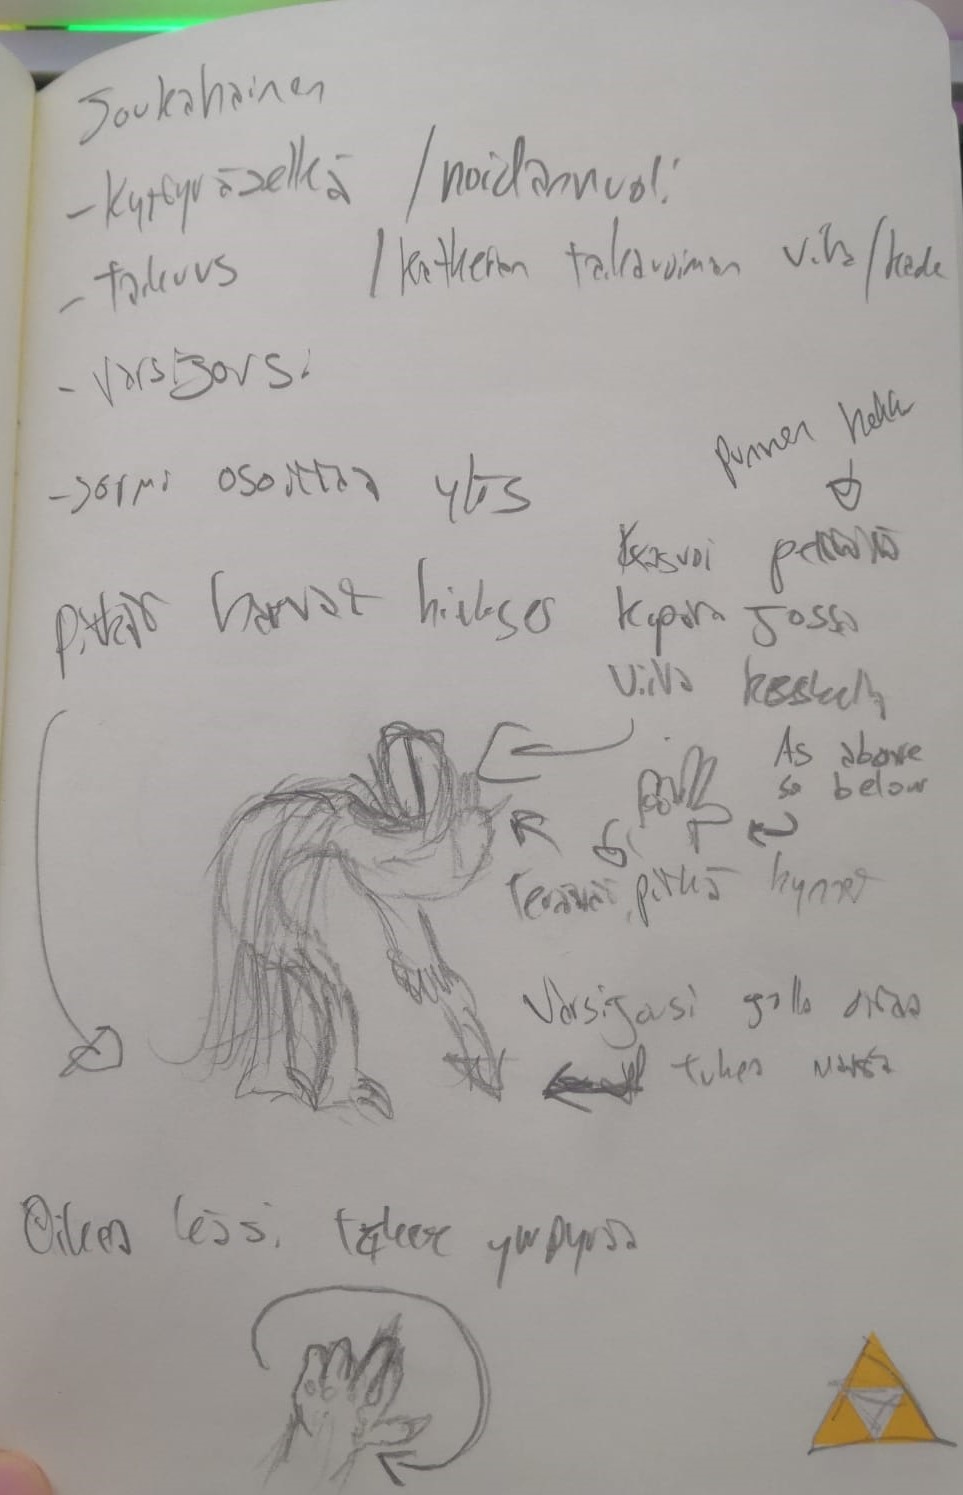 Joukahainen
- kyttyräselkä / noidannuoli
- takuus / katkeran taikavoiman viha / kade
- varsijousi
- sormi osoittaa ylös
Pitkät harvat hiukset
punnen
Kasvoi
kypärä jossa
viiva keskellä
As above
so below
Terävät, pitkä kynnet
Varsijousi jolla ottaa
tukea maasta
Oikea käsi